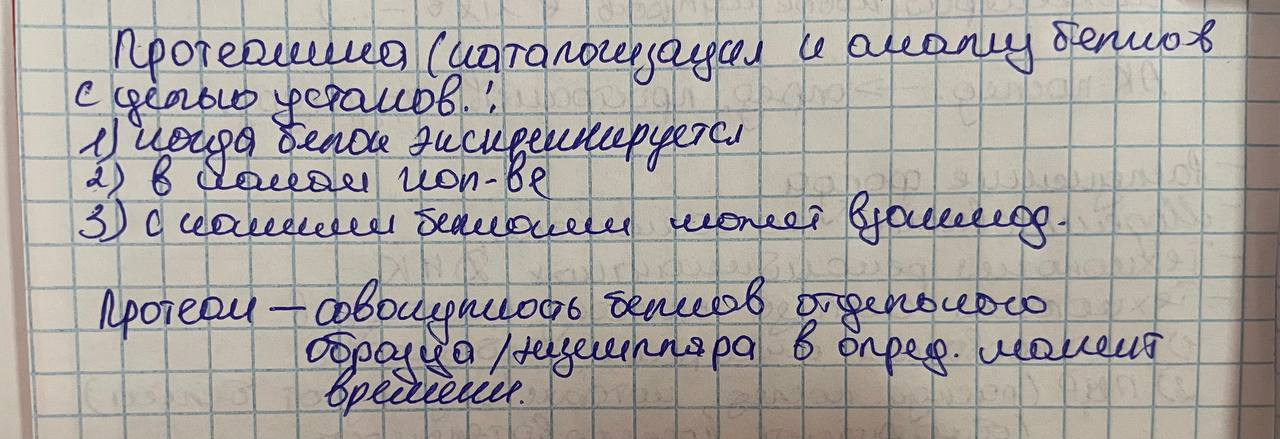 Протеомика (каталогизация и анализ белков
с целью установ.:
1) когда белок экспрессируется
2) в каком кол-ве
3) с какими белками может взаимод.
Протеом — совокупность белков отдельного
образца/экземпляра в опред. момент
времени.